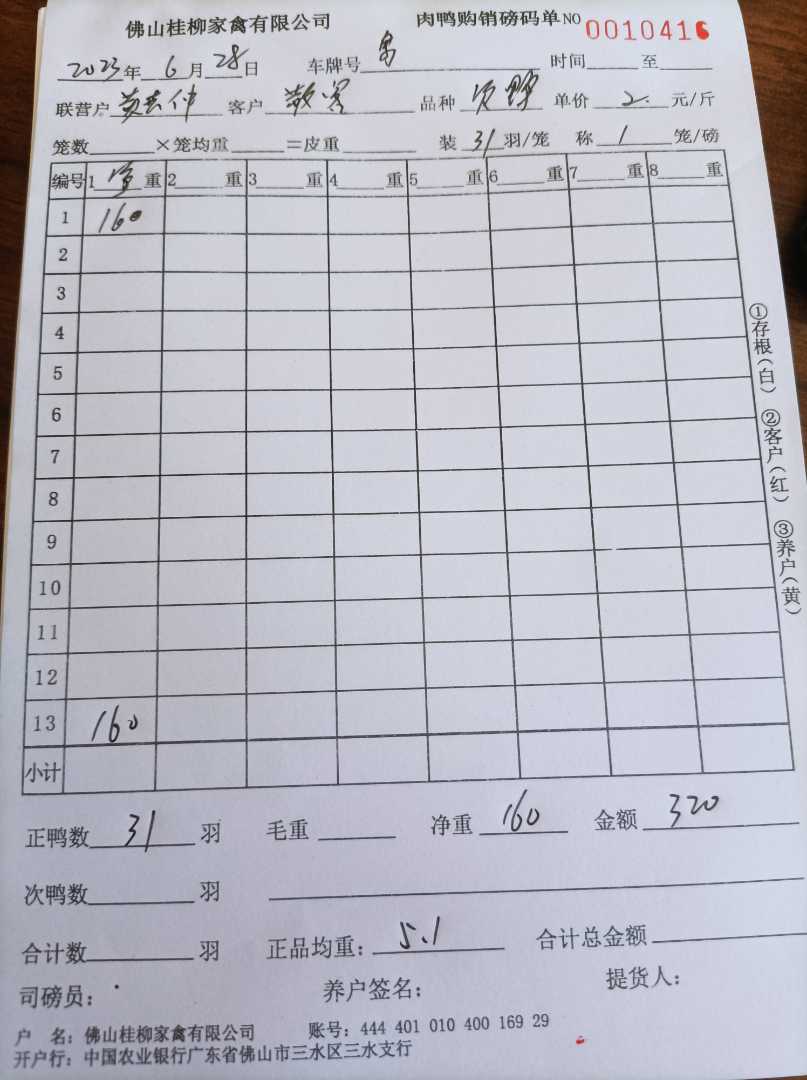 佛山桂柳家禽有限公司 肉鸭购销磅码单 NO 0010416
2023年 6月 28日 车牌号 时间 至
联营户 客户 散客 品种 单价 2. 元/斤
笼数 ×笼均重 =皮重 装 31 羽/笼 称 1 笼/磅
编号 1 净 重 2 重 3 重 4 重 5 重 6 重 7 重 8 重
1 160
2
3
4
5
6
7
8
9
10
11
12
13 160
小计
①存根(白) ②客户(红) ③养户(黄)
正鸭数 31 羽 毛重 净重 160 金额 320
次鸭数 羽
合计数 羽 正品均重: 5.1 合计总金额
司磅员: 养户签名: 提货人:
户 名: 佛山桂柳家禽有限公司 账号: 444 401 010 400 169 29
开户行: 中国农业银行广东省佛山市三水区三水支行